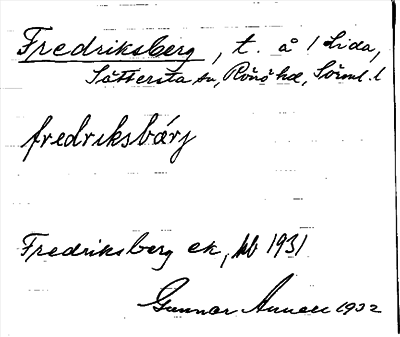 Fredriksberg, t. å 1 Lida,
Sättersta sn, Rönö hd, Sörml. l
fredriksbárj
Fredriksberg ek, kb 1931
Gunnar 1932